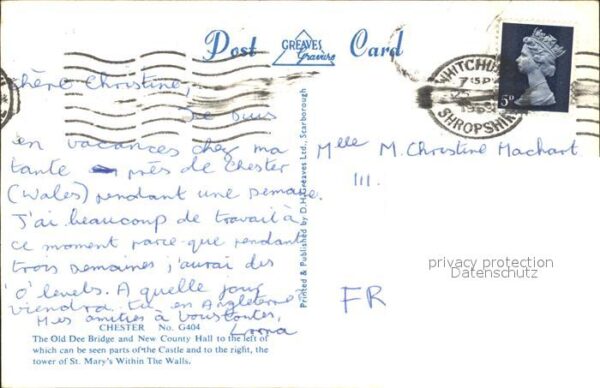 Post GREAVES Gravure Card
WHITCHURCH
7 15PM
196
SHROPSHIRE
5D
chère Christine,
Je suis
en vacances chez ma
tante près de Chester
(Wales) pendant une semaine.
J'ai beaucoup de travail à
ce moment parce-que pendant
trois semaines j'aurai des
'O' levels. A quelle jour
viendra tu en Angleterre
Mes amitiés à vous toutes,
Lorna
CHESTER No. G404
The Old Dee Bridge and New County Hall to the left of
which can be seen parts of the Castle and to the right, the
tower of St. Mary's Within The Walls.
Printed & Published by D.H.Greaves Ltd., Scarborough
Melle M. Christine Machart
111.
privacy protection
Datenschutz
FR